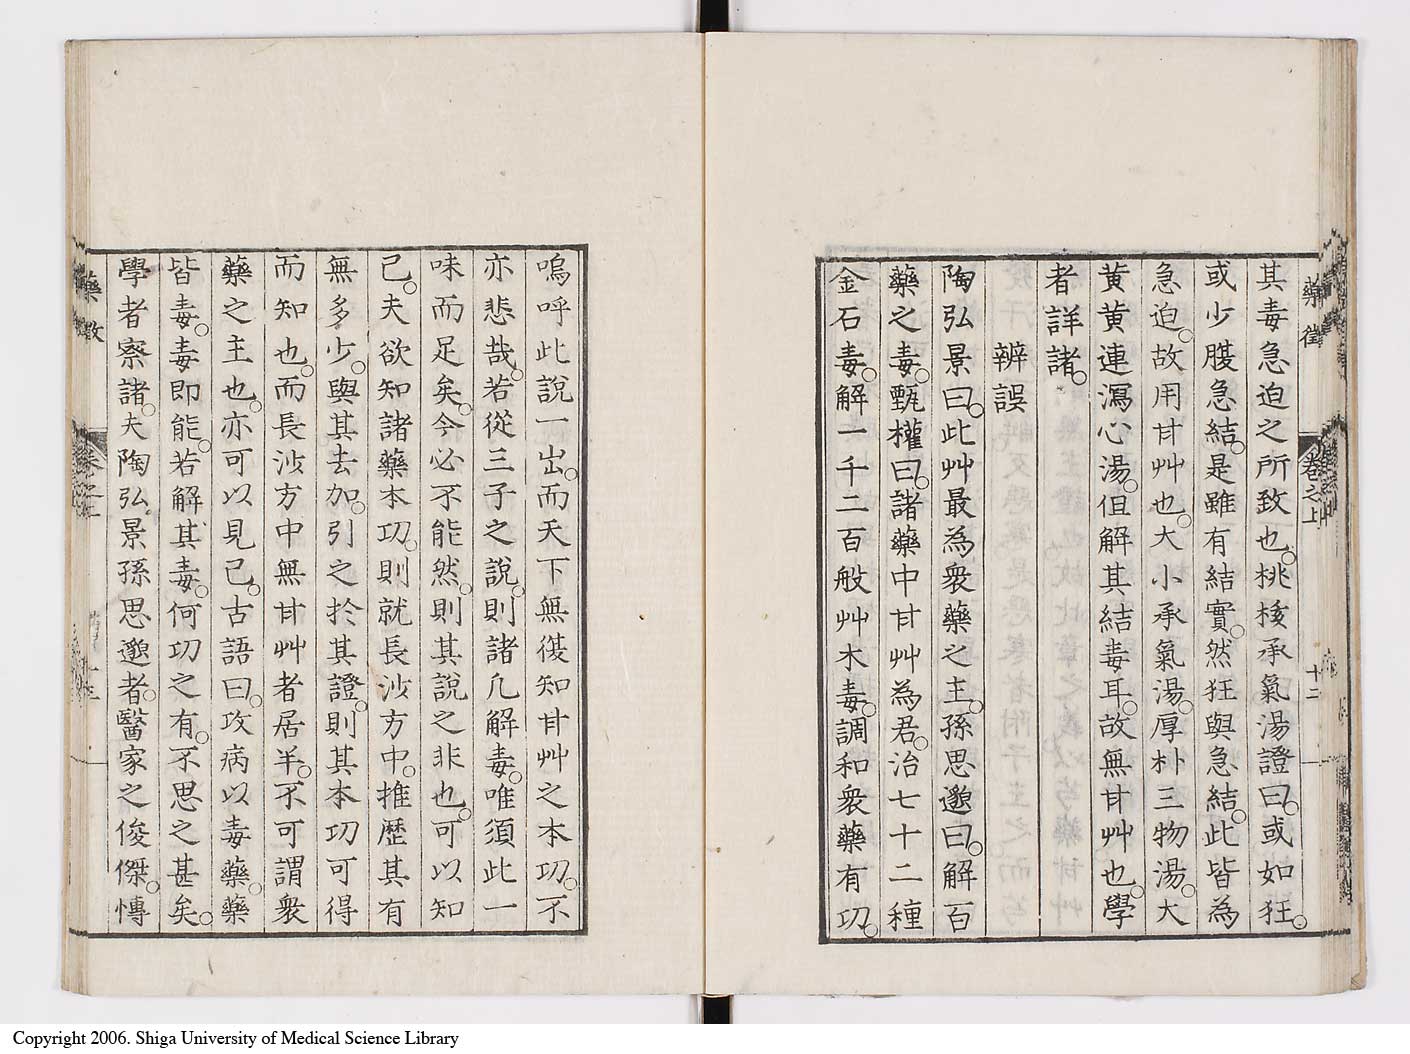 藥徵
卷之上
十二
其毒急迫之所致也。桃核承氣湯證曰。或如狂。
或少腹急結。是雖有結實。然狂與急結。此皆為
急迫。故用甘艸也。大小承氣湯。厚朴三物湯。大
黃黃連瀉心湯。但解其結毒耳。故無甘艸也。學
者詳諸。
辨誤
陶弘景曰。此艸最為衆藥之主。孫思邈曰。解百
藥之毒。甄權曰。諸藥中甘艸為君。治七十二種
金石毒。解一千二百般艸木毒。調和衆藥有功。
嗚呼此說一出。而天下無復知甘艸之本功。不
亦悲哉。若從三子之說。則諸凡解毒。唯須此一
味而足矣。今必不能然。則其說之非也。可以知
已。夫欲知諸藥本功。則就長沙方中。推歷其有
無多少。與其去加。引之於其證。則其本功可得
而知也。而長沙方中無甘艸者居半。不可謂衆
藥之主也。亦可以見已。古語曰。攻病以毒藥。藥
皆毒。毒即能。若解其毒。何功之有。不思之甚矣。
學者察諸。夫陶弘景孫思邈者。醫家之俊傑。慱
Copyright 2006. Shiga University of Medical Science Library